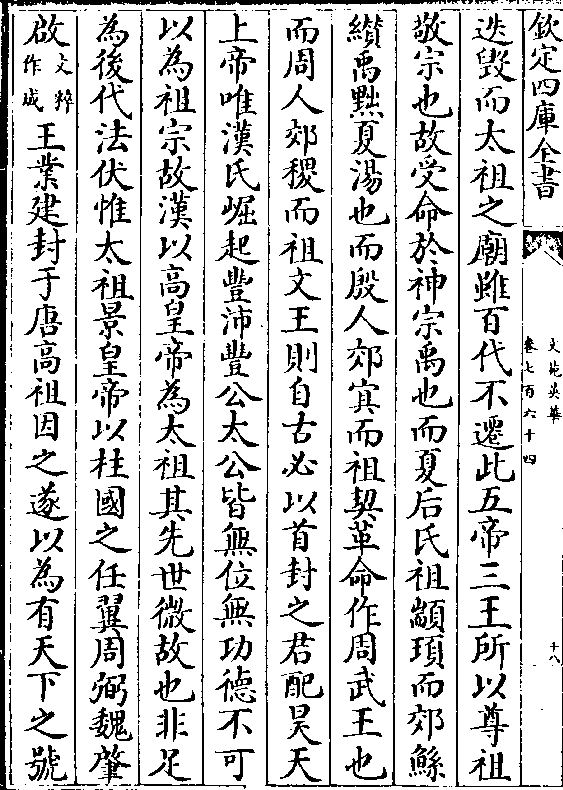 欽定四庫全書
文苑英華
卷七百六十四
十八
迭毀而太祖之廟雖百代不遷此五帝三王所以尊祖
敬宗也故受命於神宗禹也而夏后氏祖顓頊而郊鯀
纘禹黜夏湯也而殷人郊冥而祖契革命作周武王也
而周人郊稷而祖文王則自古必以首封之君配昊天
上帝唯漢氏崛起豐沛豐公太公皆無位無功德不可
以為祖宗故漢以高皇帝為太祖其先世微故也非足
為後代法伏惟太祖景皇帝以柱國之任翼周弼魏肇
啟文粹作成王業建封于唐高祖因之遂以為有天下之號